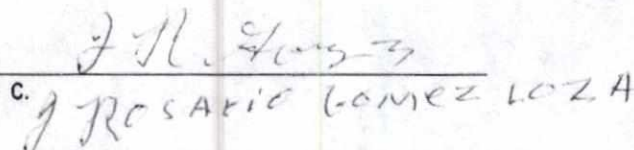 J R. Gomez
C. J ROSARIO GOMEZ LOZA